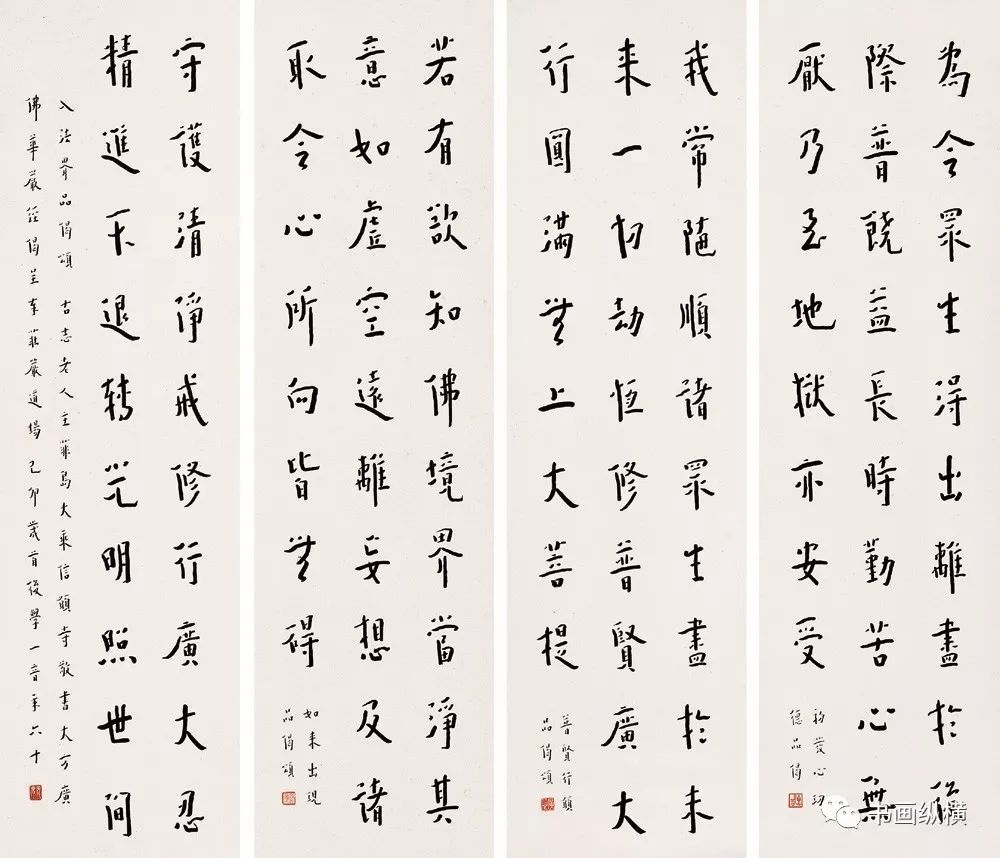 為令眾生得出離盡於後
際普饒益長時勤苦心無
厭乃至地獄亦安受
初發心功
德品偈
我常隨順諸眾生盡於未
來一切劫恒修普賢廣大
行圓滿無上大菩提
普賢行願
品偈頌
若有欲知佛境界當淨其
意如虛空遠離妄想及諸
取令心所向皆無碍
如来出現
品偈頌
守護清淨戒修行廣大忍
精進不退轉光明照世間
入法界品偈頌 古志老人主菲島大乘信願寺敬書大方廣
佛華嚴經偈呈奉莊嚴道場 己卯歲首後學一音年六十
书画纵横